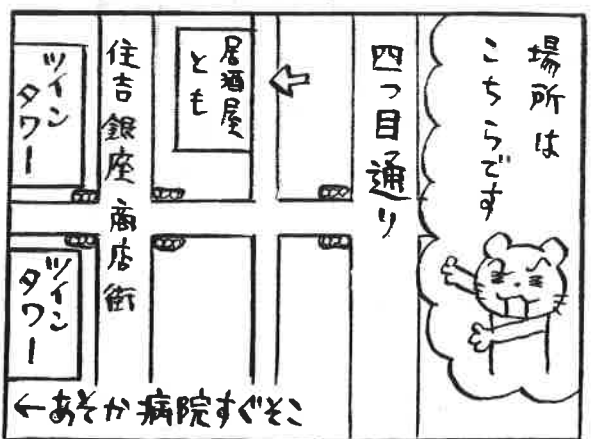 場所は
こちらです
四つ目通り
居酒屋
とも
住吉銀座商店街
ツイン
タワー
ツイン
タワー
←あそか病院すぐそこ